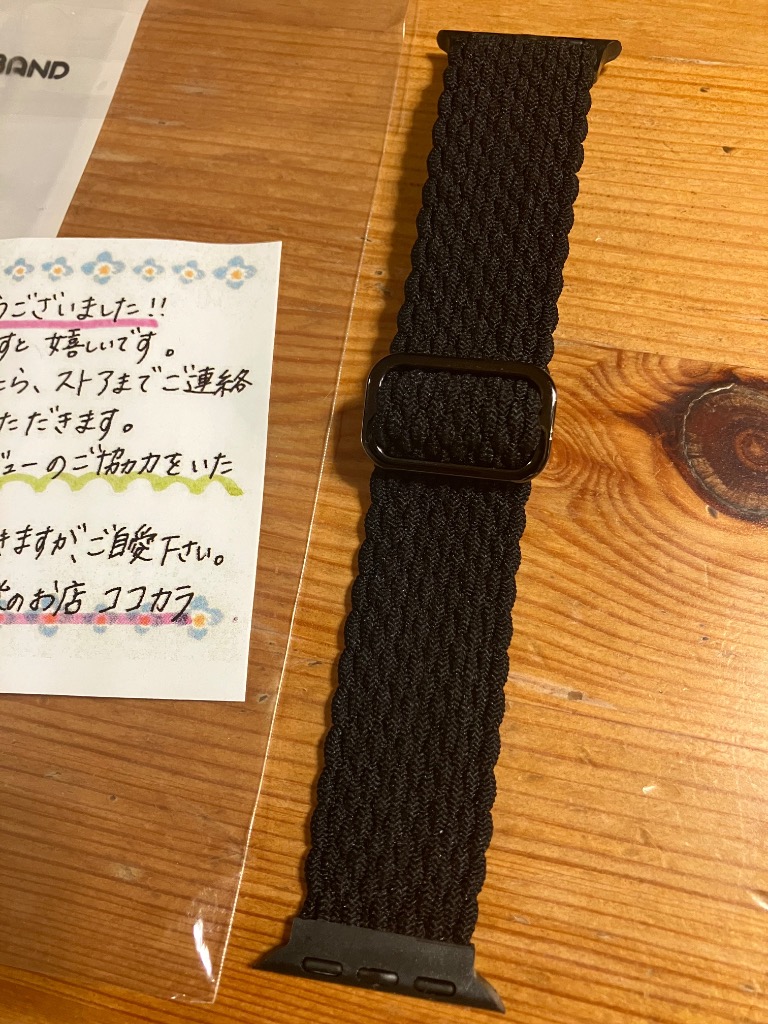 BAND
うございました!!
すと嬉しいです。
たら、ストアまでご連絡
ただきます。
ビューのご協力をいた
きますが、ご自愛下さい。
のお店 ココカラ